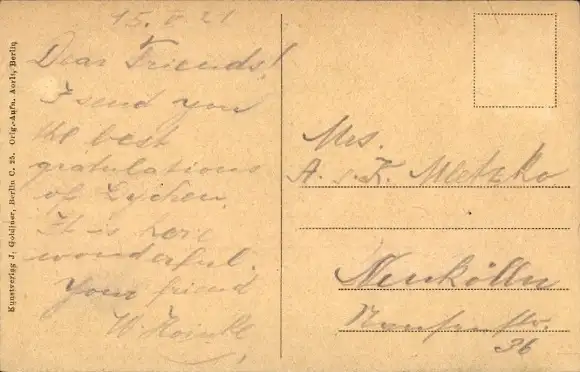 15. V 21
Dear Friends!
I send you
the best
gratulations
of Lychen.
It is here
wonderful.
Your friend
W
Mrs.
A. u. F.
Neukölln
36
Kunstverlag J. Goldiner, Berlin C. 25. Orig.-Aufn. Berlin